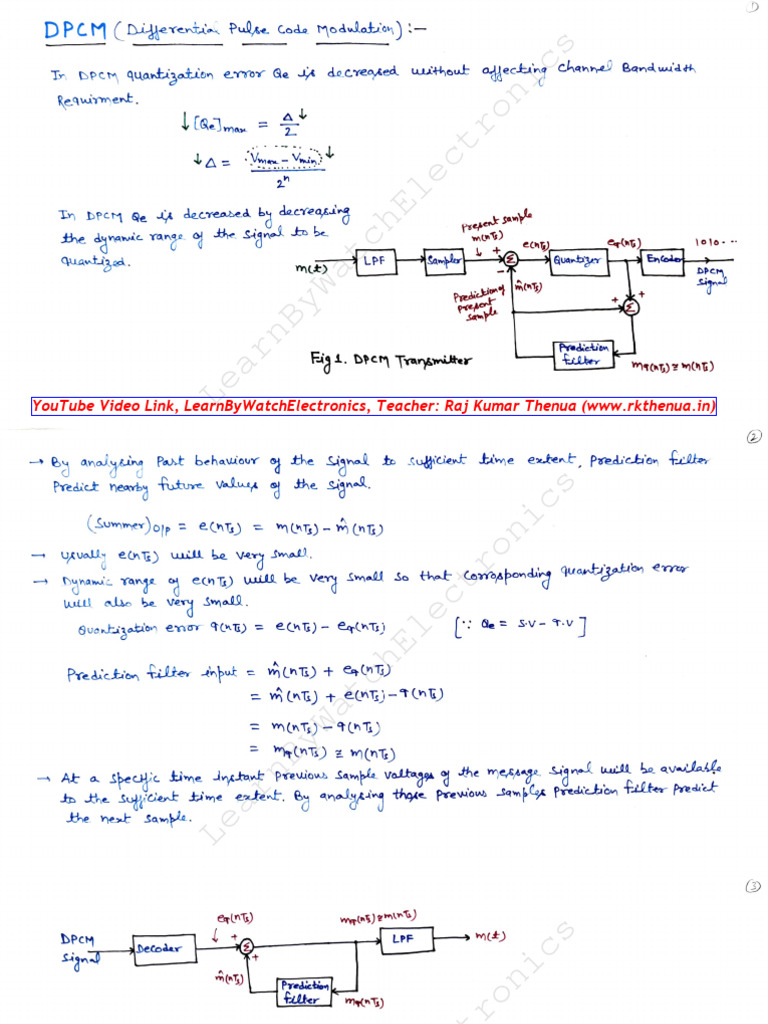 ①
DPCM (Differential Pulse Code Modulation) :-
In DPCM quantization error Qe is decreased without affecting Channel Bandwidth
Requirment.
↓ [Qe]max = Δ↓ / 2
↓ Δ = Vmax - Vmin ↓ / 2^n
In DPCM Qe is decreased by decreasing
the dynamic range of the Signal to be
quantized.
Present sample
m(nTs)
e(nTs)
eq(nTs)
1010...
m(t)
LPF
Sampler
+
Σ
-
Quantizer
Encoder
DPCM
Signal
Prediction of
present
sample
m̂(nTs)
+
+
Σ
Prediction
filter
mq(nTs) ≅ m(nTs)
Fig 1. DPCM Transmitter
YouTube Video Link, LearnByWatchElectronics, Teacher: Raj Kumar Thenua (www.rkthenua.in)
②
→ By analysing Past behaviour of the Signal to sufficient time extent, Prediction filter
Predict nearby future values of the signal.
(Summer)O/P = e(nTs) = m(nTs) - m̂(nTs)
→ Usually e(nTs) will be very small.
→ Dynamic range of e(nTs) will be very small so that corresponding quantization error
will also be very small.
Quantization error q(nTs) = e(nTs) - eq(nTs) [∵ Qe = S.V - q.V]
Prediction filter input = m̂(nTs) + eq(nTs)
= m̂(nTs) + e(nTs) - q(nTs)
= m(nTs) - q(nTs)
= mq(nTs) ≅ m(nTs)
→ At a specific time instant Previous sample voltages of the message signal will be available
to the sufficient time extent. By analysing those previous samples Prediction filter Predict
the next sample.
③
DPCM
Signal
Decoder
eq(nTs)
+
Σ
+
m̂(nTs)
Prediction
filter
mq(nTs) ≅ m(nTs)
LPF
m(t)
mq(nTs)
LearnByWatchElectronics
LearnByWatchElectronics